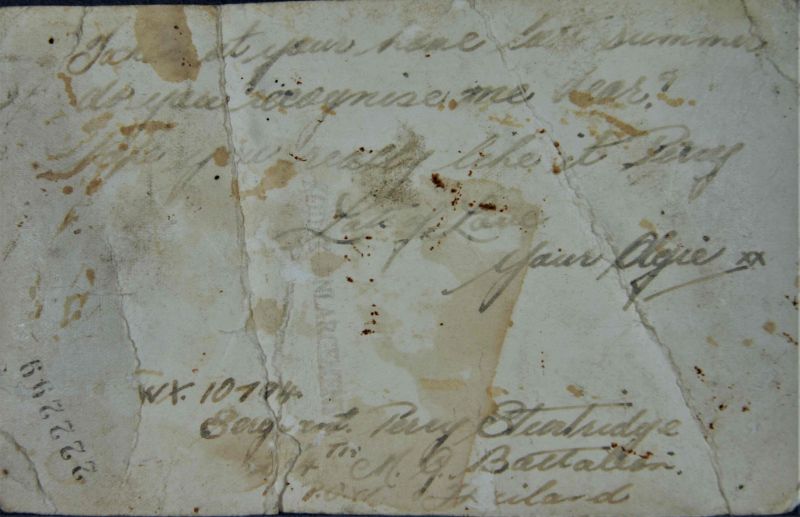 Taken at your home last summer
do you recognise me dear?
Hope you really like it Percy
Lots of Love
Your Algie xx
WX. 10794.
Sergeant. Percy Sturtridge
2/4 Th M. G. Battalion.
P.O.W. Thailand
222299